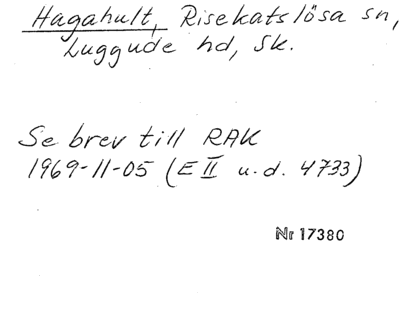 Hagahult, Risekatslösa sn,
Luggude hd, Sk.
Se brev till RAK
1969-11-05 (E II u.d. 4733)
Nr 17380